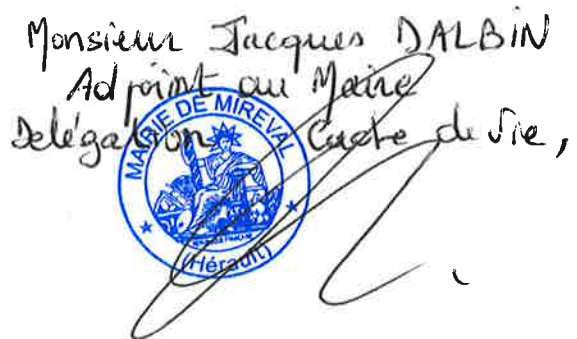 Monsieur Jacques DALBIN
Adjoint au Maire
Delégation Cadre de Vie,
MAIRIE DE MIREVAL
(Hérault)